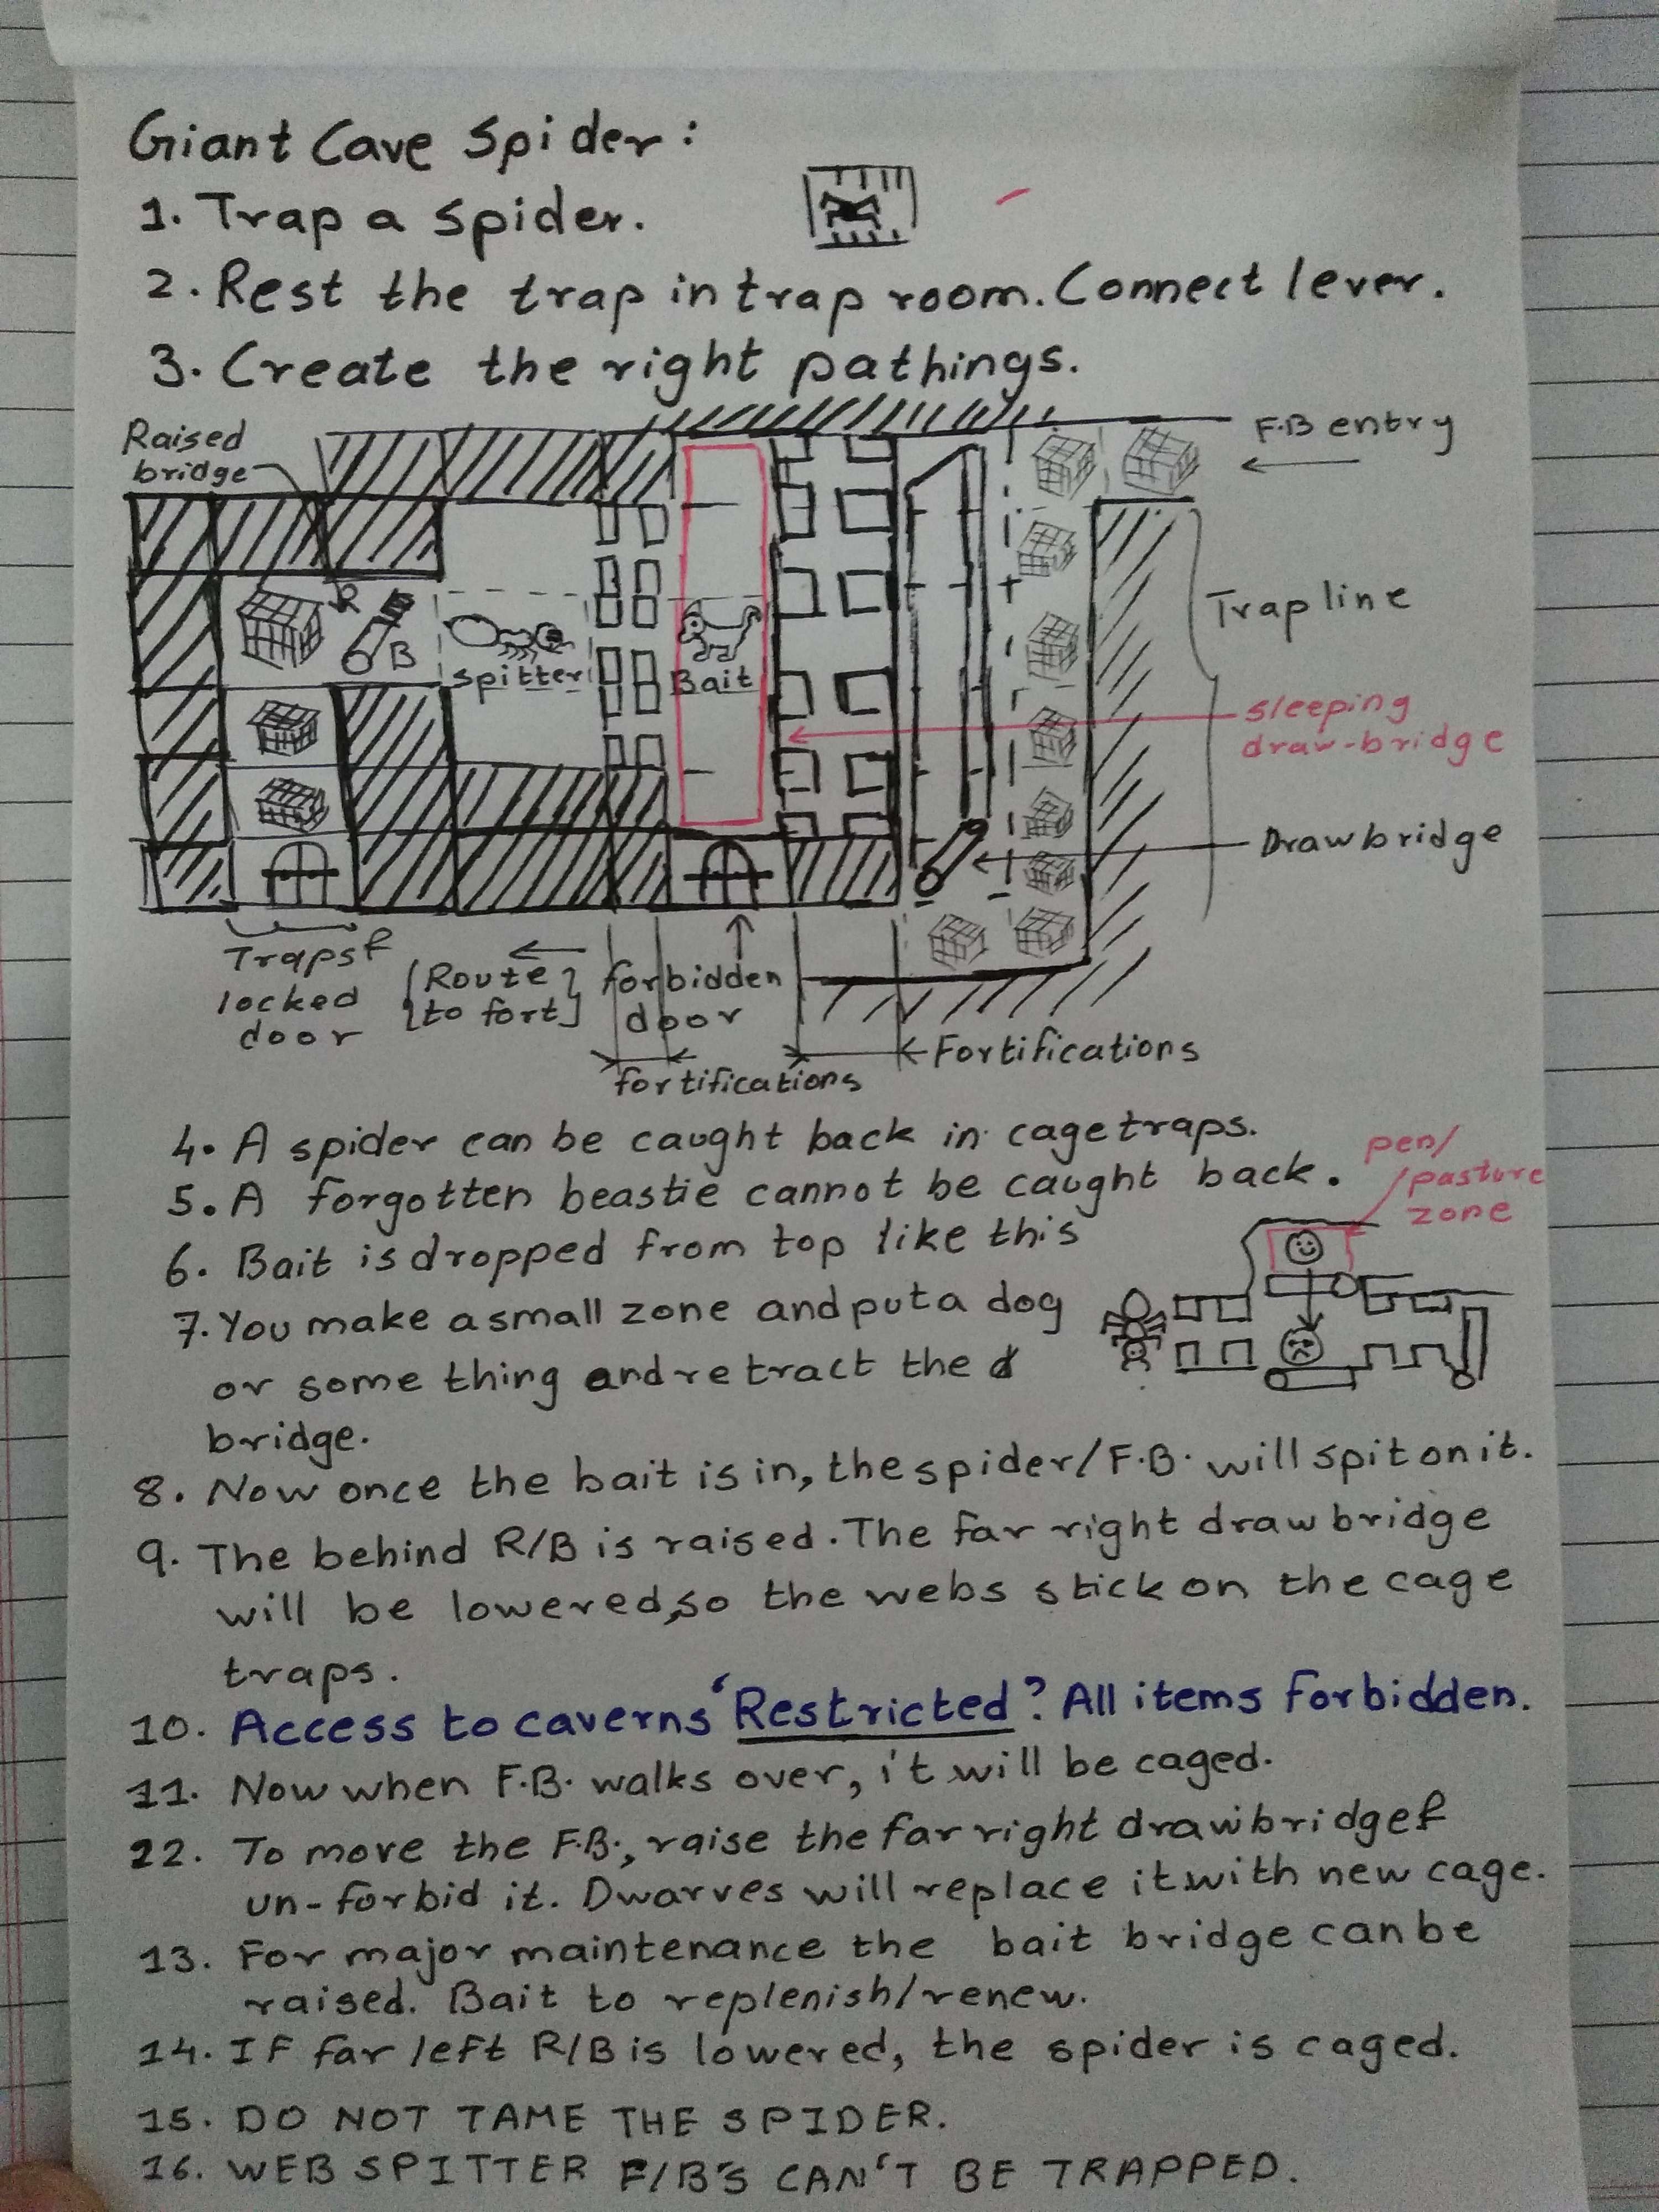 Giant Cave Spider:
1. Trap a spider.
2. Rest the trap in trap room. Connect lever.
3. Create the right pathings.
Raised
bridge
F.B entry
R
B
spitter
Bait
Trap line
sleeping
draw-bridge
Drawbridge
Traps &
locked
door
Route
to fort
forbidden
door
Fortifications
fortifications
4. A spider can be caught back in cage traps.
5. A forgotten beastie cannot be caught back.
pen/
pasture
zone
6. Bait is dropped from top like this
7. You make a small zone and put a dog
or some thing and retract the d
bridge.
8. Now once the bait is in, the spider/F.B. will spit on it.
9. The behind R/B is raised. The far right drawbridge
will be lowered, so the webs stick on the cage
traps.
10. Access to caverns 'Restricted'? All items forbidden.
11. Now when F.B. walks over, it will be caged.
22. To move the F.B., raise the far right drawbridge &
un-forbid it. Dwarves will replace it with new cage.
13. For major maintenance the bait bridge can be
raised. Bait to replenish/renew.
14. If far left R/B is lowered, the spider is caged.
15. DO NOT TAME THE SPIDER.
16. WEB SPITTER F/B'S CAN'T BE TRAPPED.